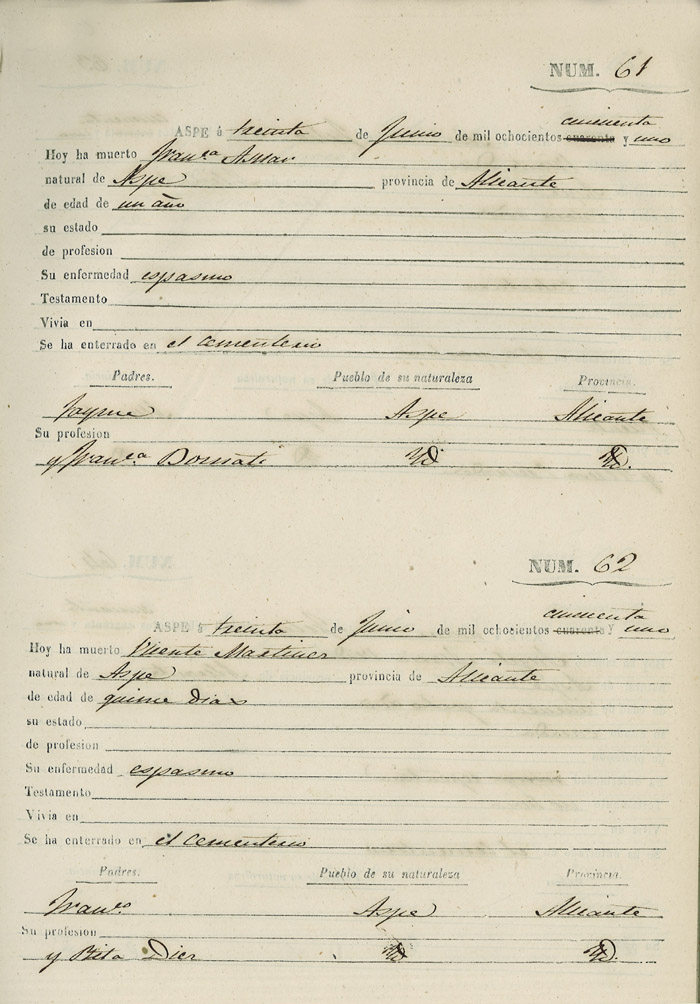 NUM. 61
cincuenta
ASPE á treinta de Junio de mil ochocientos cuarenta y uno
Hoy ha muerto Fran.ca Asnar
natural de Aspe provincia de Alicante
de edad de un año
su estado
de profesion
Su enfermedad espasmo
Testamento
Vivia en
Se ha enterrado en el Cementerio
Padres. Pueblo de su naturaleza Provincia.
Jayme Aspe Alicante
Su profesion
y Fran.ca Yd. Yd.
NUM. 62
cincuenta
ASPE á treinta de Junio de mil ochocientos cuarenta Y uno
Hoy ha muerto Vicente Martines
natural de Aspe provincia de Alicante
de edad de quinse dias
su estado
de profesion
Su enfermedad espasmo
Testamento
Vivia en
Se ha enterrado en el Cementerio
Padres. Pueblo de su naturaleza Provincia.
Fran.co Aspe Alicante
Su profesion
y Rita Dies Yd Yd.